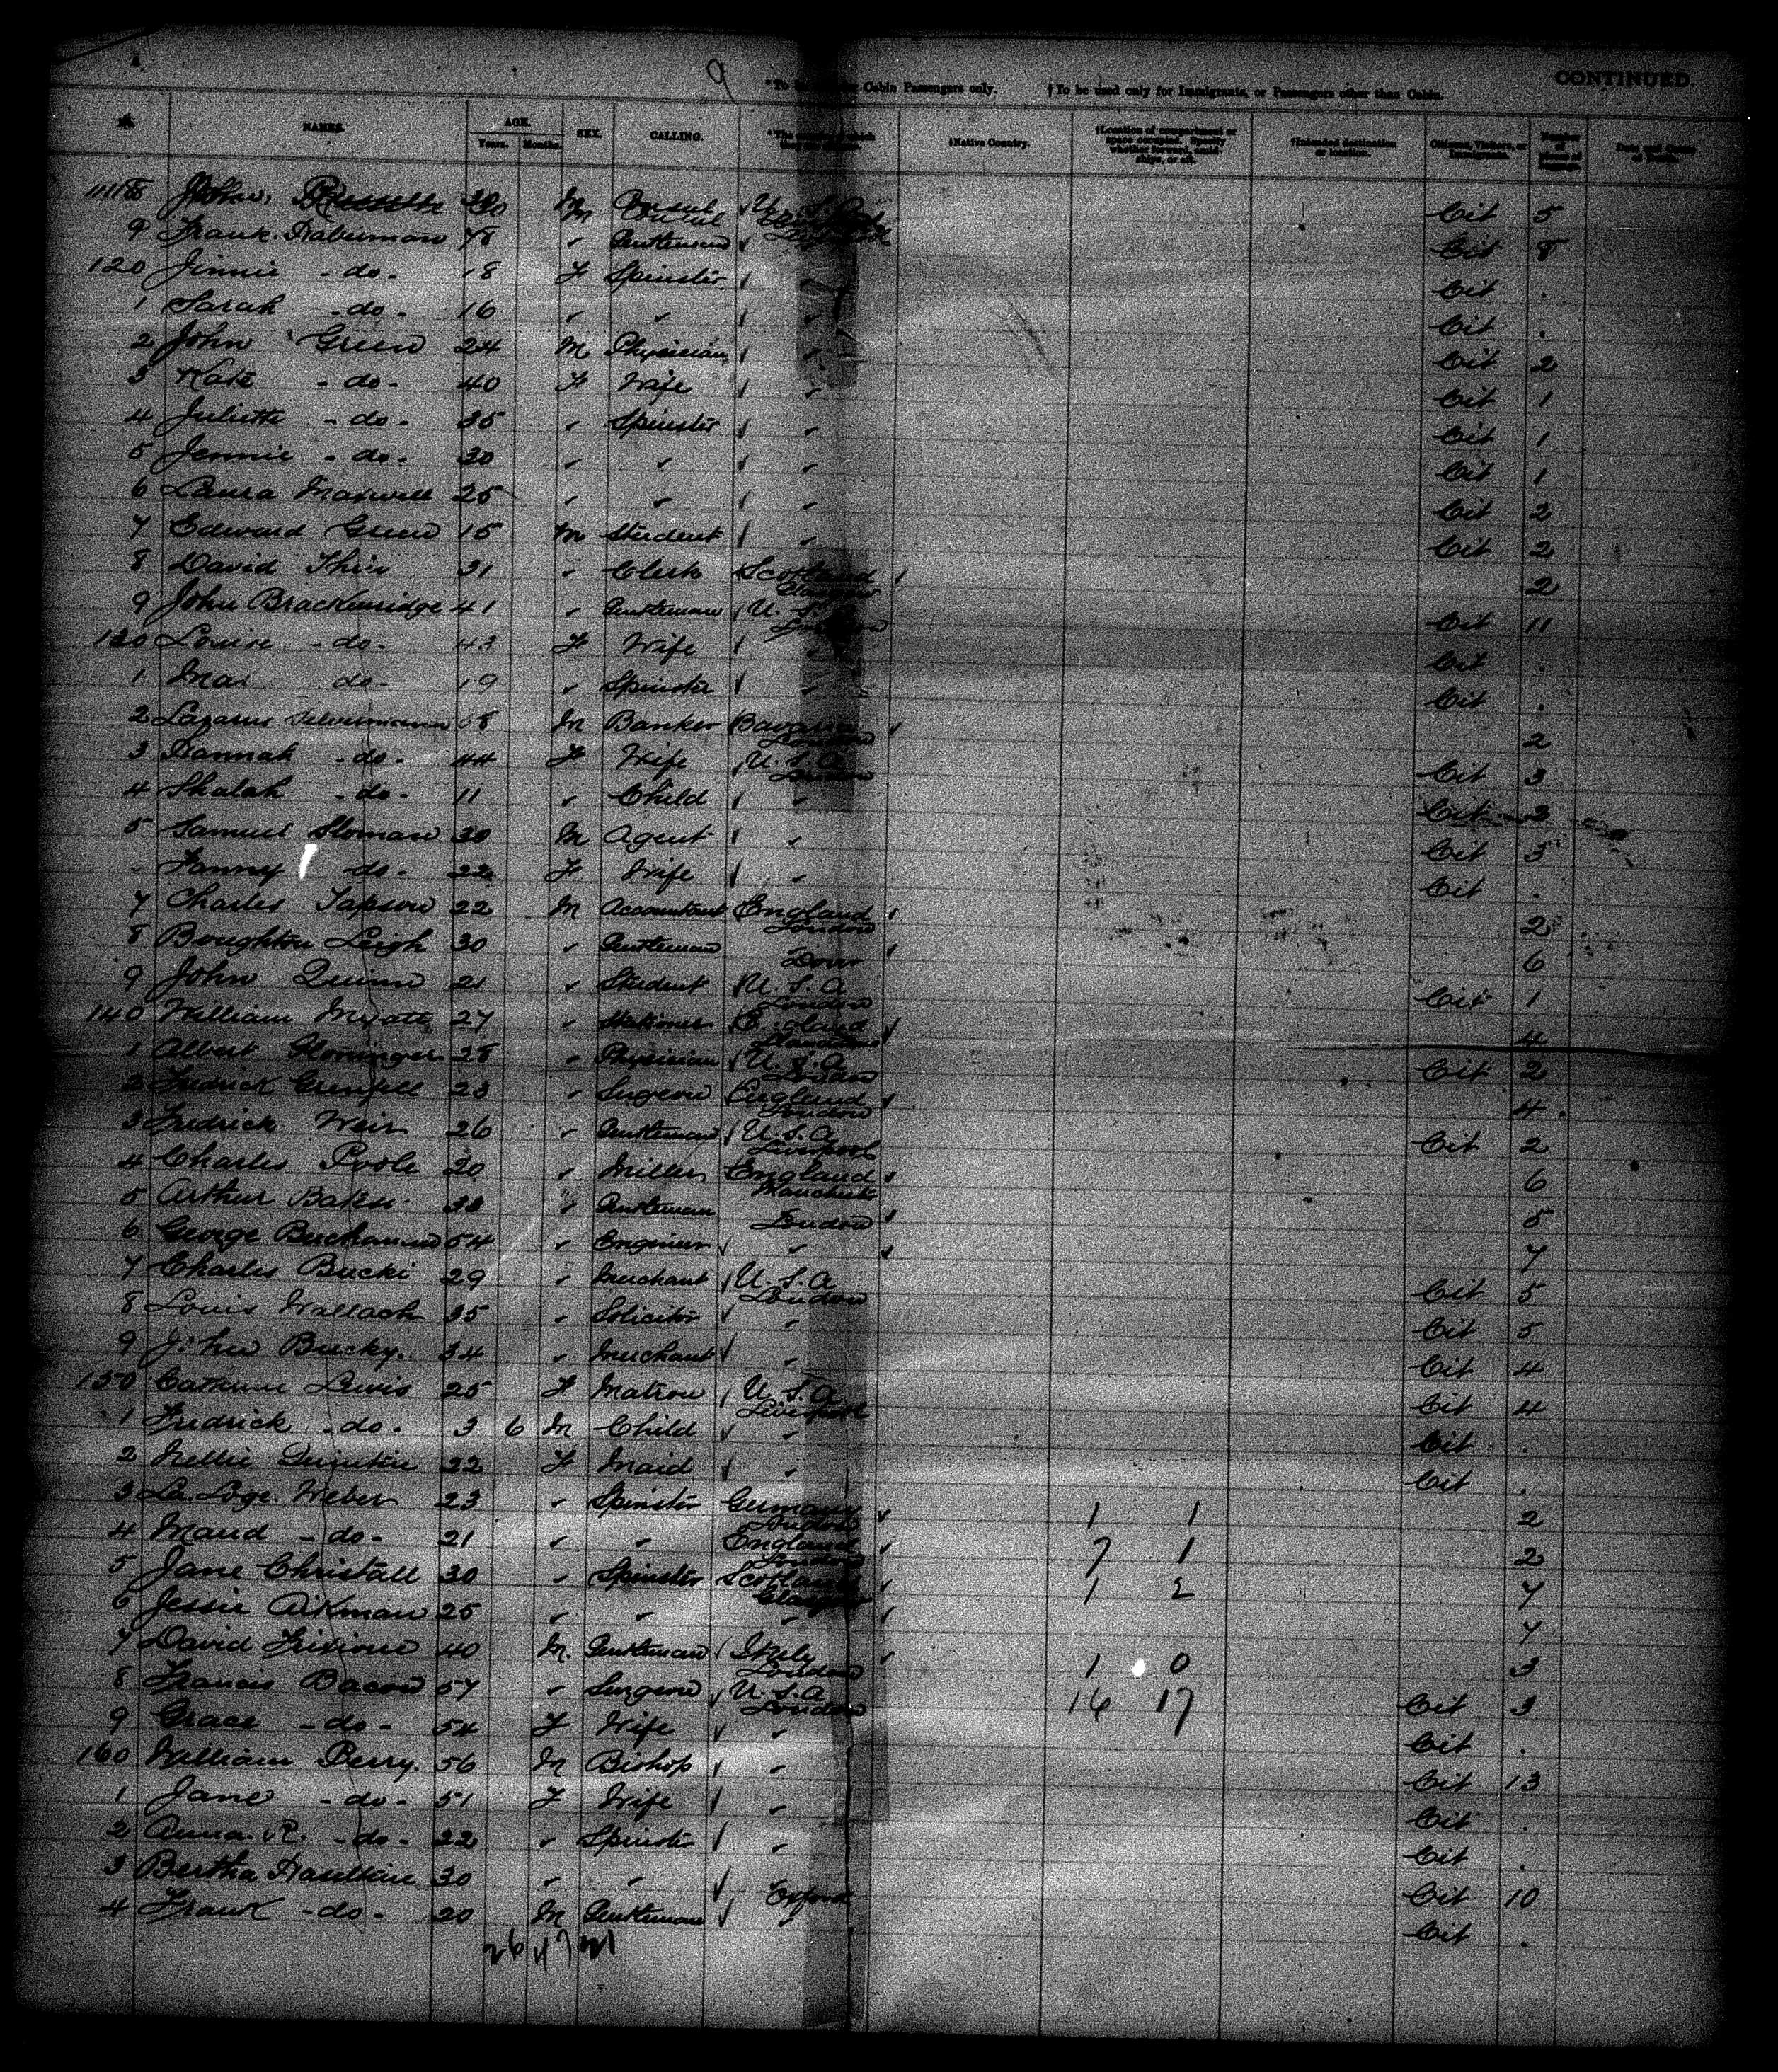 9
CONTINUED.
*To be Cabin Passengers only. †To be used only for Immigrants, or Passengers other than Cabin.
NAMES. AGE. Years. Months. SEX. CALLING. †Native Country. †Location of compartment or †Intended destination or location. Citizens, Visitors, or Immigrants. Number of
John Consul U.S. Cit 5
9 Frank Haberman 48 " Gentleman Cit 8
120 Jinnie - do - 18 F Spinster " Cit .
1 Sarah - do - 16 " " " Cit .
2 John Green 24 M Physician " Cit 2
3 Kate - do - 40 F Wife " Cit 1
4 Juliette - do - 35 " Spinster " Cit 1
5 Jennie - do - 30 " " " Cit 1
6 Laura Maxwell 25 " " " Cit 2
7 Edward Green 15 M Student " Cit 2
8 David 31 " Clerk Scotland Glasgow 2
9 John Brackenridge 41 " Gentleman U.S.A London Cit 11
130 Louise - do - 43 F Wife " Cit .
1 Mai do - 19 " Spinster " Cit .
2 Lazarus Silvermann 58 M Banker Bavaria London 2
3 Hannah - do - 44 F Wife U.S.A London Cit 3
4 Shalah - do - 11 " Child " Cit 3
5 Samuel Sloman 30 M Agent " Cit 3
Fanny do - 22 F Wife " Cit .
7 Charles Tapson 22 M Accountant England London 2
8 Boughton Leigh 30 " Gentleman Dover 6
9 John Quinn 21 " Student U.S.A London Cit 1
140 William Myatt 27 " Stationer England 4
1 Albert Gloninger 28 " Physician U.S.A London Cit 2
2 Fredrick Grenfell 23 " Sugeon England London 4
3 Fredrick Weir 26 " Gentleman U.S.A Liverpool Cit 2
4 Charles Poole 20 " Miller England Manchester 6
5 Arthur Baker 38 " Gentleman London 5
6 George Buchanan 54 " Engineer " 7
7 Charles Bucki 29 " Merchant U.S.A London Cit 5
8 Louis Wallach 35 " Solicitor " Cit 5
9 John Bucky. 34 " Merchant " Cit 4
150 Catherine Lewis 25 F Matron U.S.A Liverpool Cit 4
1 Fredrick - do - 3 6 M Child " Cit .
2 Nellie 22 F Maid " Cit .
3 Weber 23 " Spinster Germany London 1 1 2
4 Maud - do - 21 " " England London 7 1 2
5 Jane Christall 30 " Spinster Scotland Glasgow 1 2 7
6 Jessie Aikman 25 " " " 7
7 David 40 M. Gentleman Italy London 1 0 3
8 Francis Bacon 57 " Surgeon U.S.A London 16 17 Cit 3
9 Grace - do - 54 F Wife " Cit .
160 William Perry. 56 M Bishop " Cit 13
1 Jane - do - 51 F Wife " Cit .
2 Anna. R. - do - 22 " Spinster " Cit .
3 Bertha 30 " " Oxford Cit 10
4 Frank - do - 20 M Gentleman " Cit .